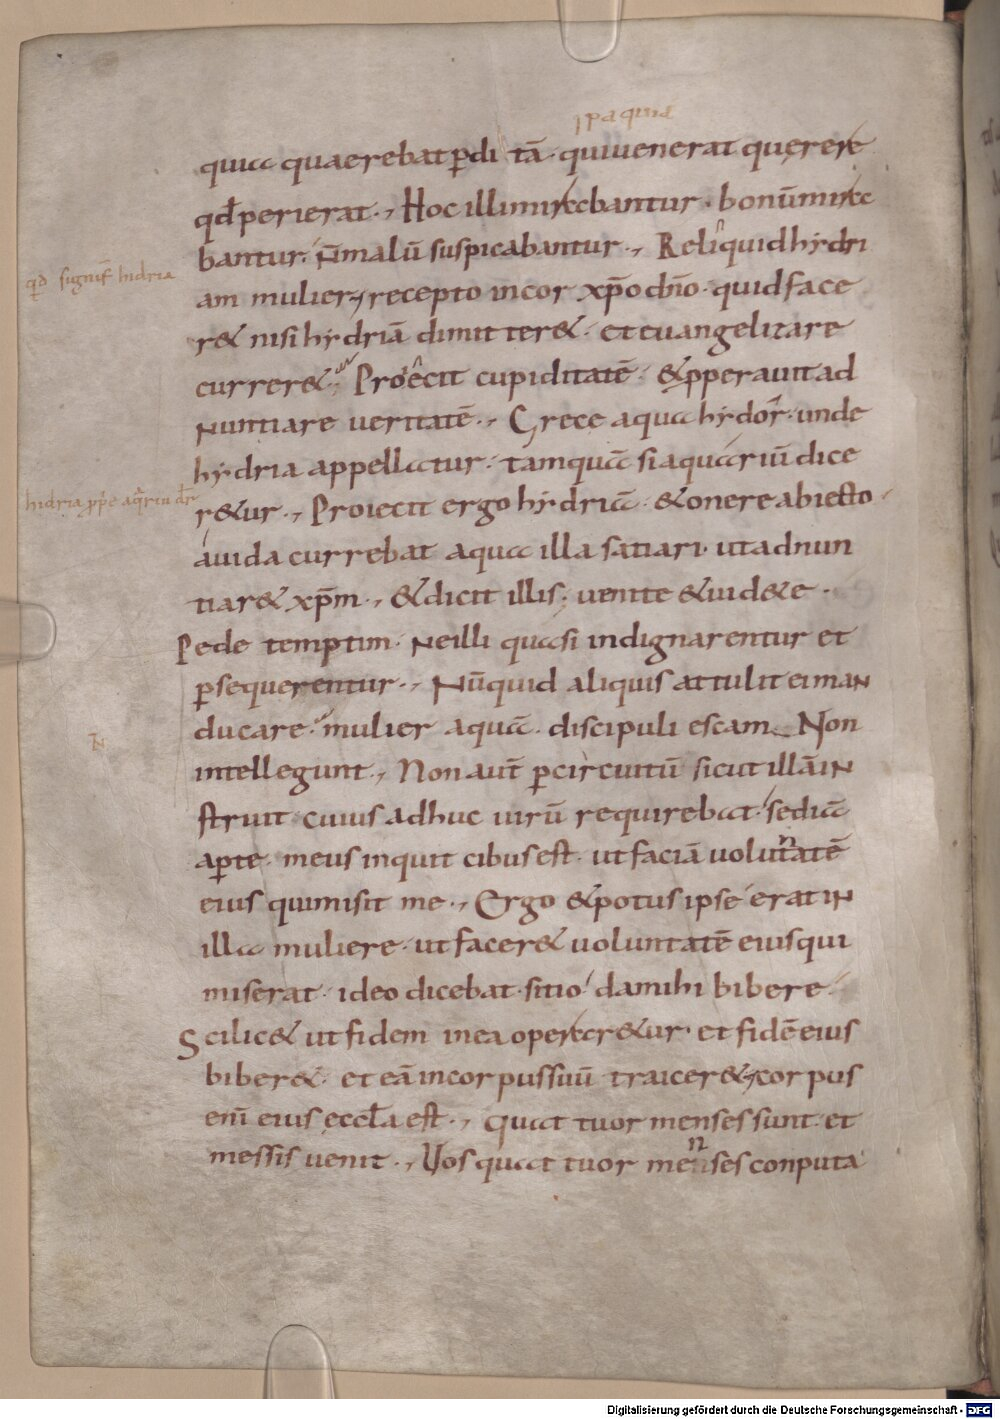 quia quaerebat ꝑdi tā· qui uenerat querere
qd̄ perierat·, Hoc illi mirabantur· bonū mira
bantur· n̄ malū suspicabantur·, Reliquid hydri
qd̄ signif̄ hidria
am mulier, recepto in cor xp̄o dn̄o· quid face
r& nisi hydriā dimitter&· et euangelizare
currer&· Proiecit cupiditatē· & ꝓperauit ad
nuntiare ueritatē·, Grece aqua hydor· unde
hydria appellatur· tamquā si aquariū dice
r&ur·, Proiecit ergo hydriā· & onere abiecto
auida currebat aqua illa satiari· ut adnun
tiar& xp̄m·, & dicit illis· uenite & uid&e·
Pede temptim· Ne illi quasi indignarentur et
ꝑsequerentur·, Nūquid aliquis attulit ei man
ducare· mulier aquā· discipuli escam Non
intellegunt·, Non aut̄ ꝑ circuitū sicut illā in
struit· cuius adhuc uirū requirebat· sed iā
aꝑte· meus inquit cibus est· ut faciā voluntatē
eius qui misit me·, Ergo & potus ipse erat in
illa muliere· ut facer& uoluntatē eius qui
miserat· ideo dicebat· sitio· da mihi bibere
Scilic& ut fidem in ea operar&ur· et fidē eius
biber&· et eā in corpus suū traicer&, corpus
eni͞ eius eccl̄a est·, quattuor menses sunt et
messis uenit·, Uos quattuor menses conputa